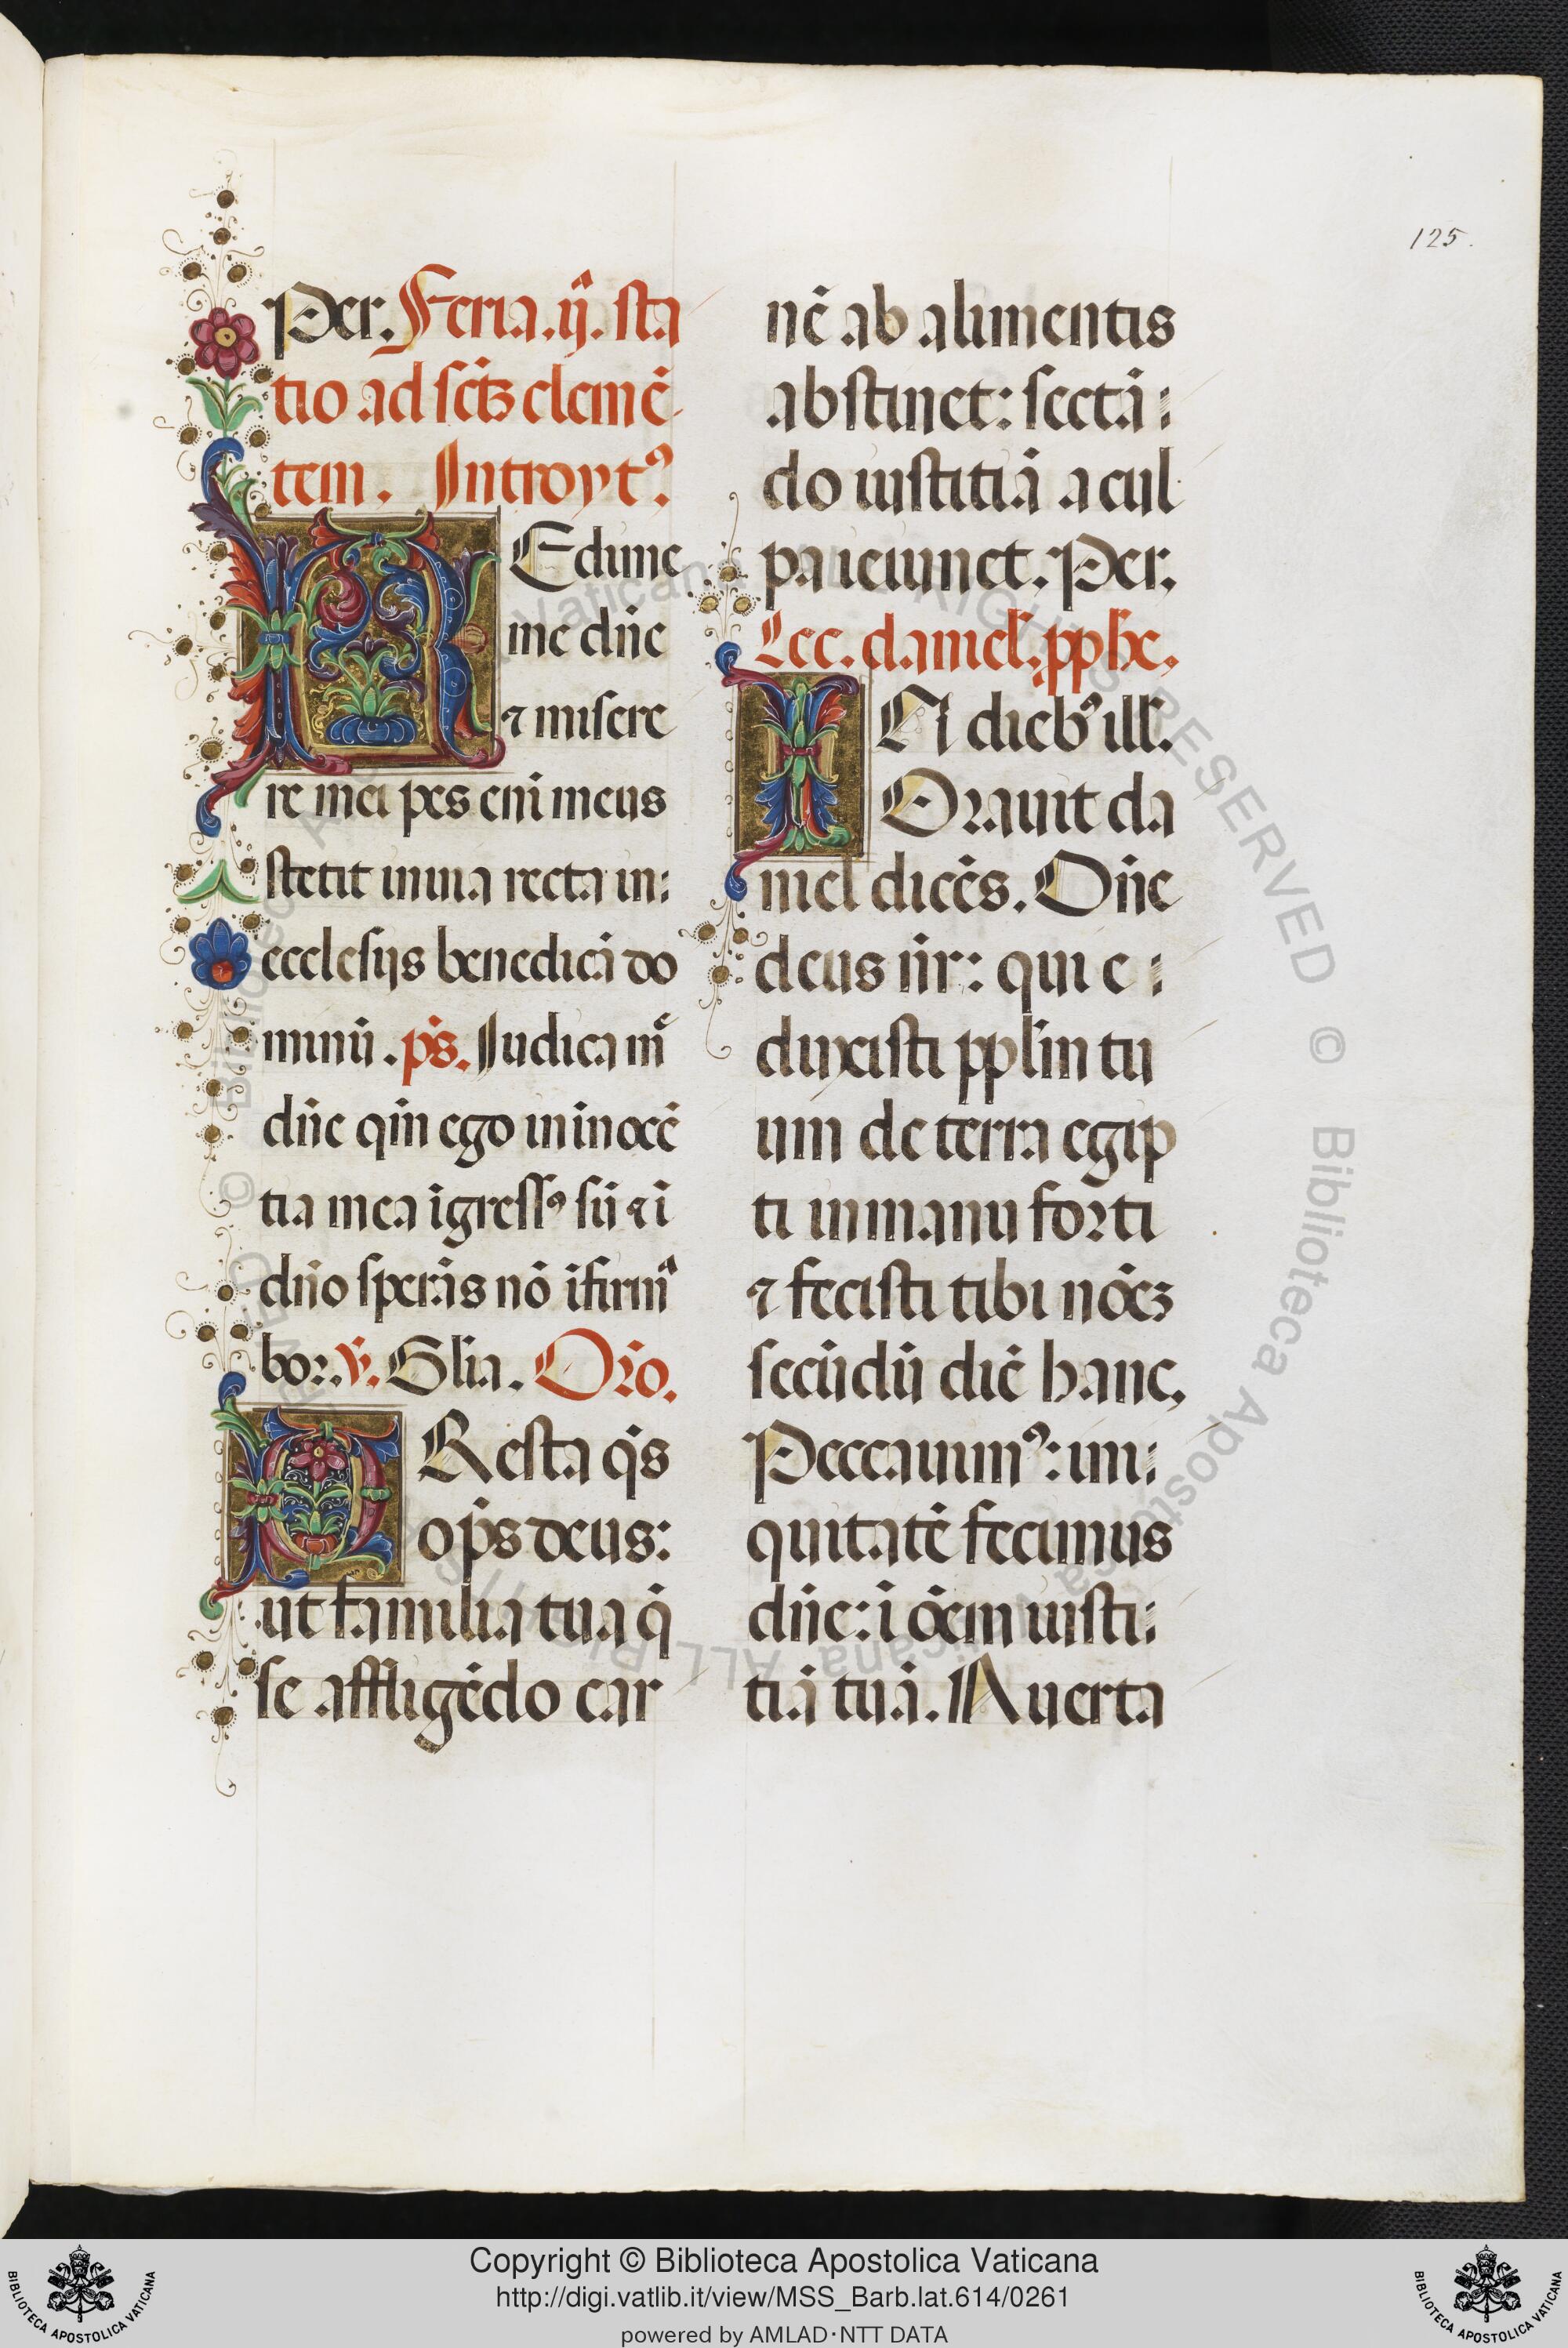 125.
Per. Feria .ij. sta
tio ad sc̄tȝ clemē
tem. Introytꝰ.
REdime
me dn̄e
⁊ misere
re mei pes eni meus
stetit in uia recta in:
ecclesijs benedicā do
minū. ps̄. Iudica m̄
dn̄e qm̄ ego in inocē
tia mea īgressꝰ sū ⁊ ī
dn̄o sperās nō īfirma
bor. ℣. Gl̄ia. Or̄o.
PResta qs̄
op̄s deus:
ut familia tua q̄
se affligēdo car
nē ab alimentis
abstinet: sectā:
do iustitiā a cul
pa ieiunet. Per.
Lec. daniel̄. ꝓph̄e.
IN diebꝰ ill̄.
Orauit da
niel dicēs. Dn̄e
deus nr̄: qui e:
duxisti ppl̄m tu
um de terra egip
ti in manu forti
⁊ fecisti tibi nōēȝ
secūdū diē hanc.
Peccauimꝰ: ini:
quitatē fecimus
dn̄e: ī ōēm iusti:
tiā tuā. Auerta
Copyright © Biblioteca Apostolica Vaticana
http://digi.vatlib.it/view/MSS_Barb.lat.614/0261
powered by AMLAD·NTT DATA
BIBLIOTECA APOSTOLICA VATICANA
BIBLIOTECA APOSTOLICA VATICANA